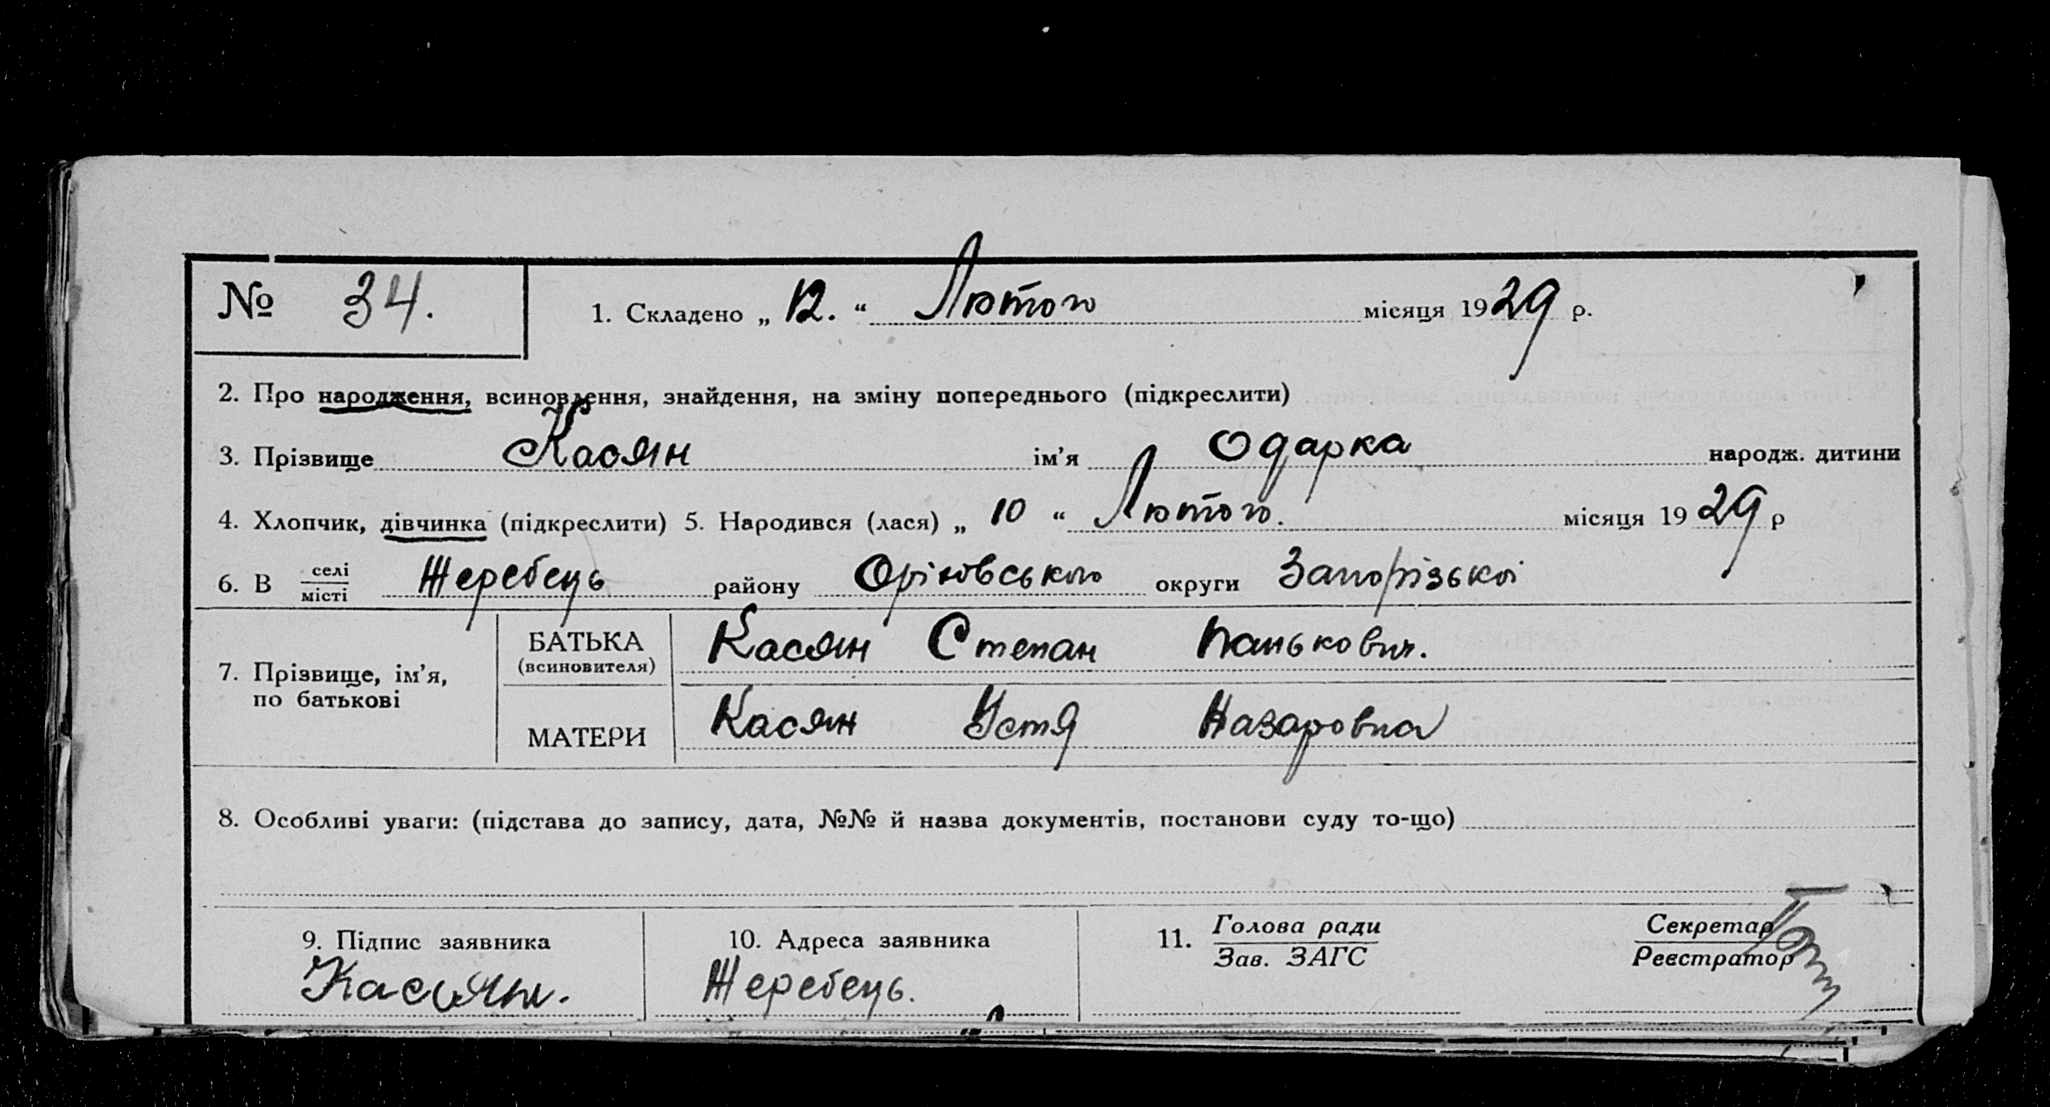 № 34. 1. Складено „ 12. “ Лютого місяця 1929 р.
2. Про народження, всиновлення, знайдення, на зміну попереднього (підкреслити)
3. Прізвище Касян ім’я Одарка народж. дитини
4. Хлопчик, дівчинка (підкреслити) 5. Народився (лася) „ 10 “ Лютого. місяця 1929 р
6. В селі місті Жеребець району Оріхівського округи Запорізької
7. Прізвище, ім’я, по батькові
БАТЬКА (всиновителя) Касян Степан Панькович.
МАТЕРИ Касян Устя Назаровна
8. Особливі уваги: (підстава до запису, дата, №№ й назва документів, постанови суду то-що)
9. Підпис заявника 10. Адреса заявника 11. Голова ради Секретар
Зав. ЗАГС Реєстратор
Касян. Жеребець.